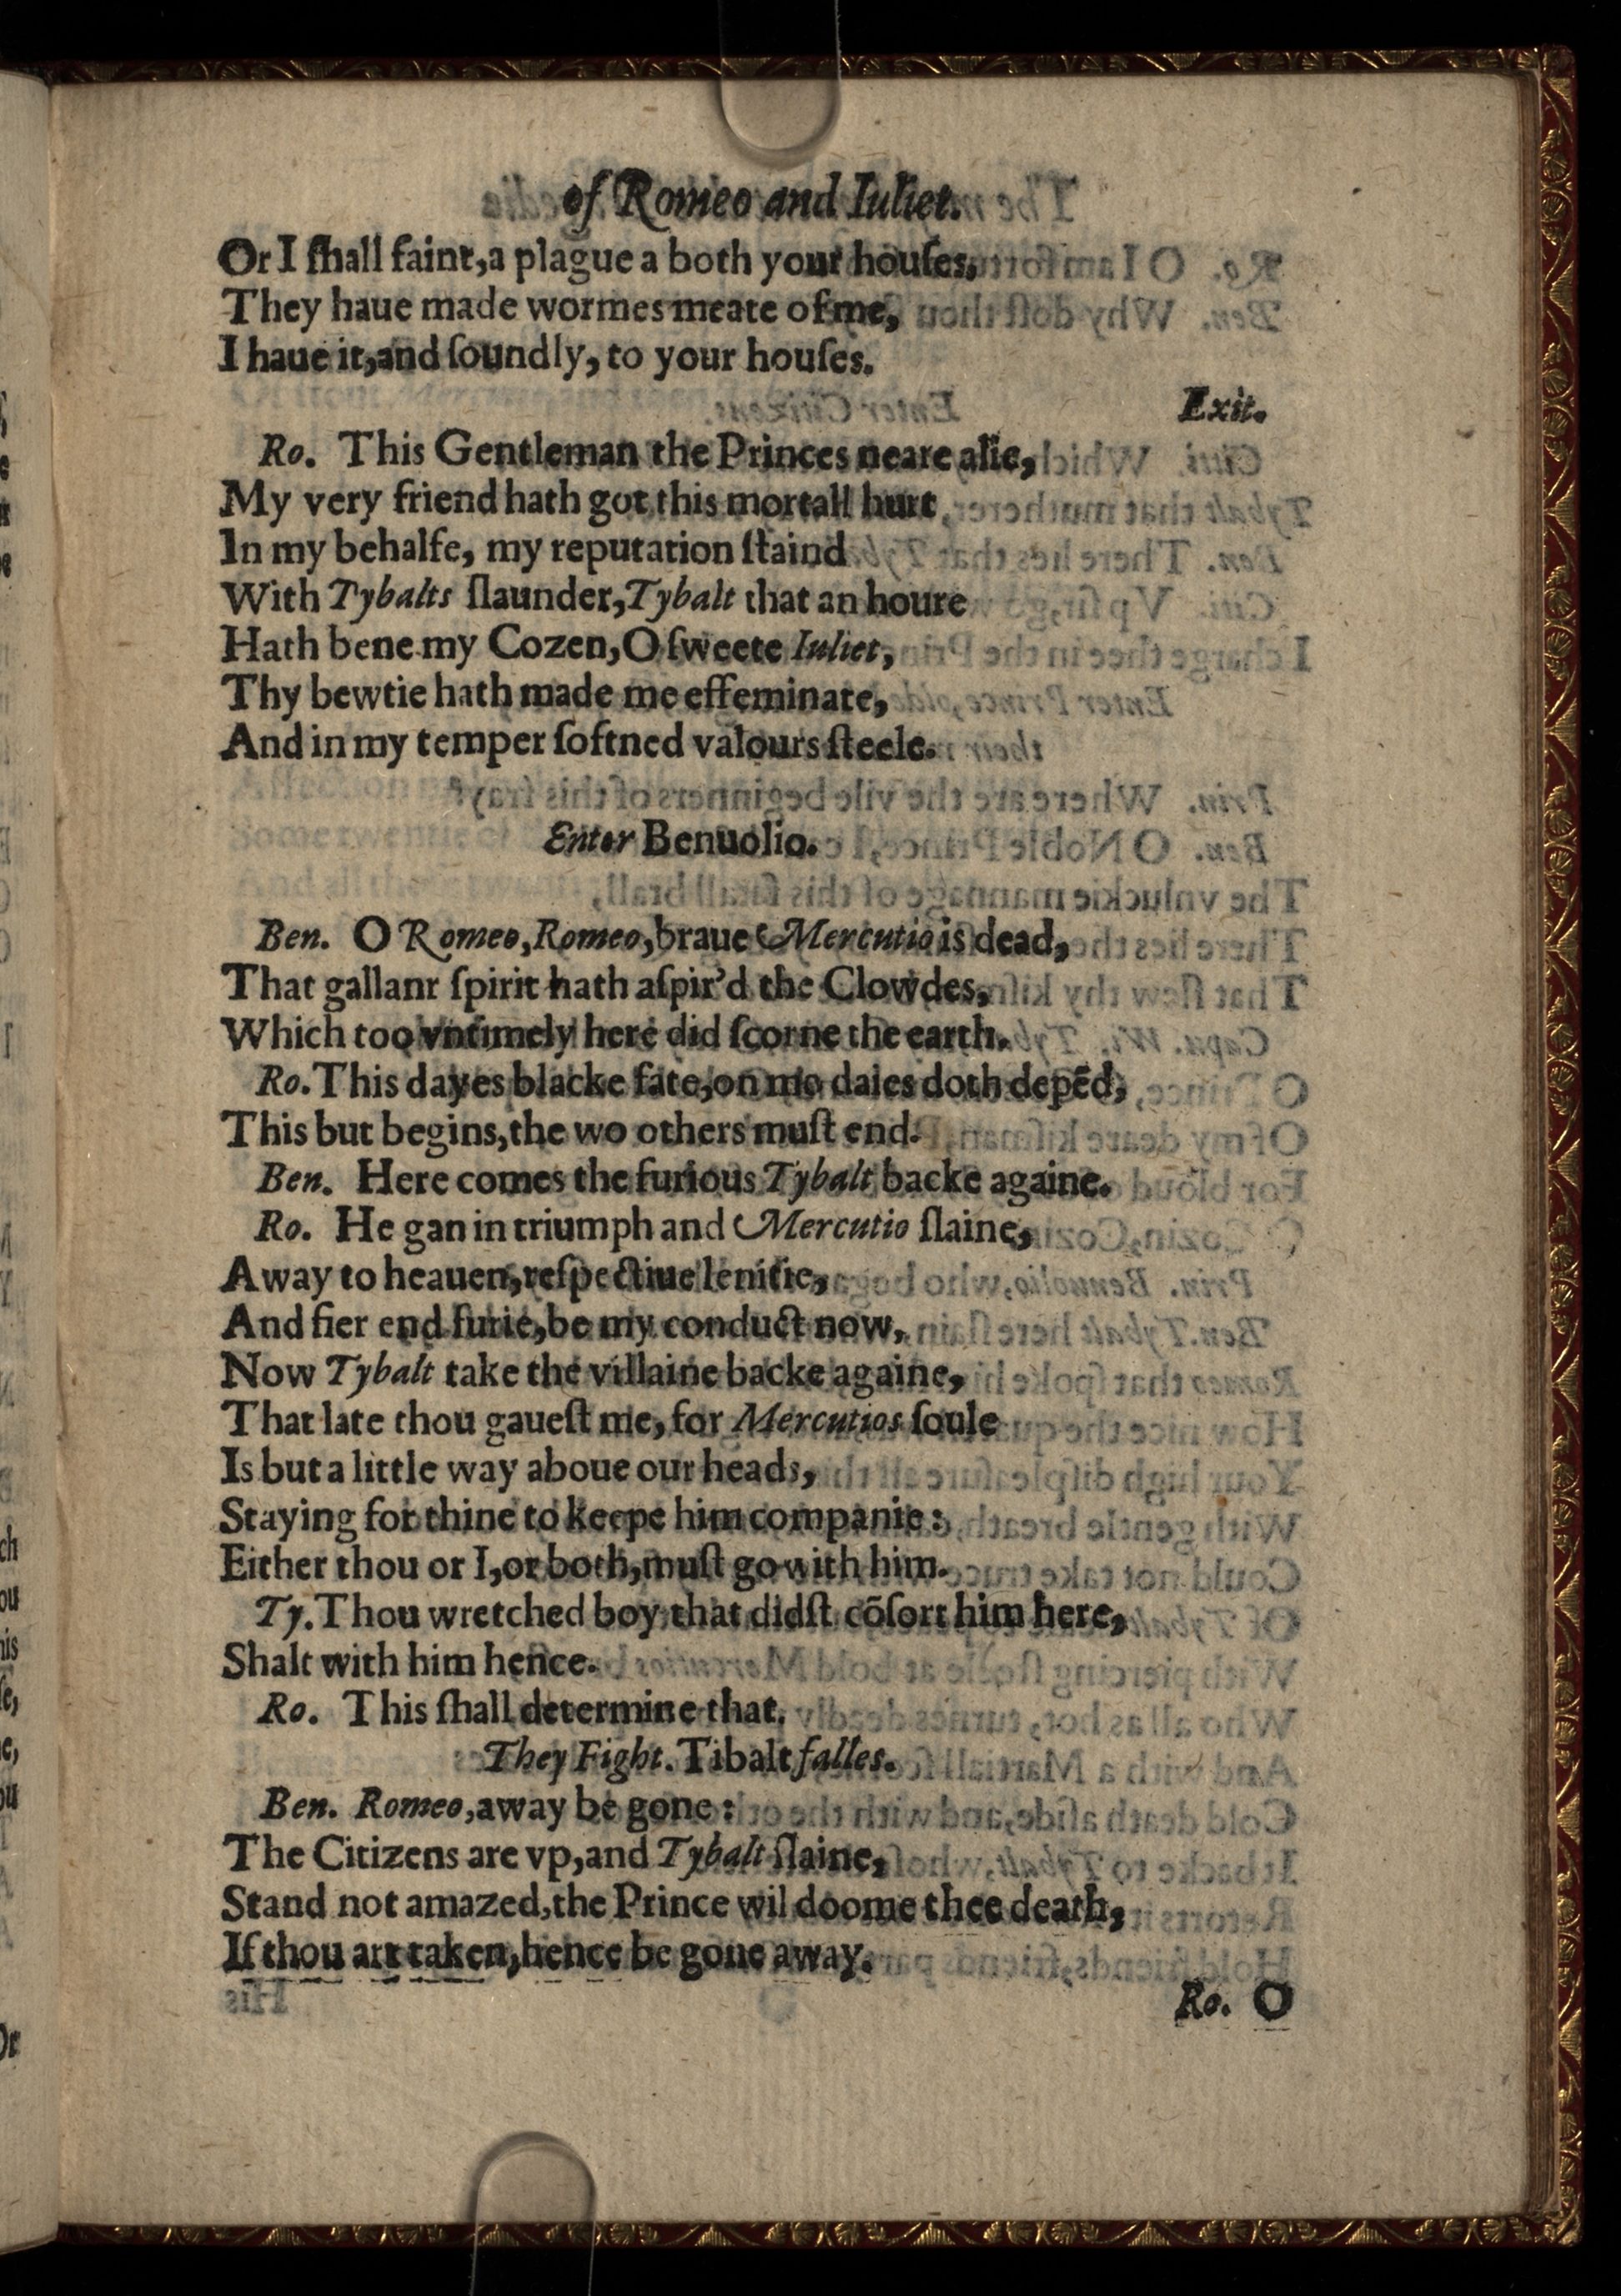 of Romeo and Iuliet.
Or I ſhall faint, a plague a both your houſes,
They haue made wormes meate of me,
I haue it, and ſoundly, to your houſes.
Exit.
Ro. This Gentleman the Princes neare alie,
My very friend hath got this mortall hurt
In my behalfe, my reputation ſtaind
With Tybalts ſlaunder, Tybalt that an houre
Hath bene my Cozen, O ſweete Iuliet,
Thy bewtie hath made me effeminate,
And in my temper ſoftned valours ſteele.
Enter Benuolio.
Ben. O Romeo, Romeo, braue Mercutio is dead,
That gallanr ſpirit hath aſpir'd the Clowdes,
Which too vntimely here did ſcorne the earth.
Ro. This dayes blacke fate, on mo daies doth depēd,
This but begins, the wo others muſt end.
Ben. Here comes the furious Tybalt backe againe.
Ro. He gan in triumph and Mercutio ſlaine,
Away to heauen, reſpectiue lenitie,
And fier end furie, be my conduct now,
Now Tybalt take the villaine backe againe,
That late thou gaueſt me, for Mercutios ſoule
Is but a little way aboue our heads,
Staying for thine to keepe him companie:
Either thou or I, or both, muſt go with him.
Ty. Thou wretched boy that didſt cōſort him here,
Shalt with him hence.
Ro. This ſhall determine that.
They Fight. Tibalt falles.
Ben. Romeo, away be gone:
The Citizens are vp, and Tybalt ſlaine,
Stand not amazed, the Prince wil doome thee death,
If thou art taken, hence be gone away.
Ro. O